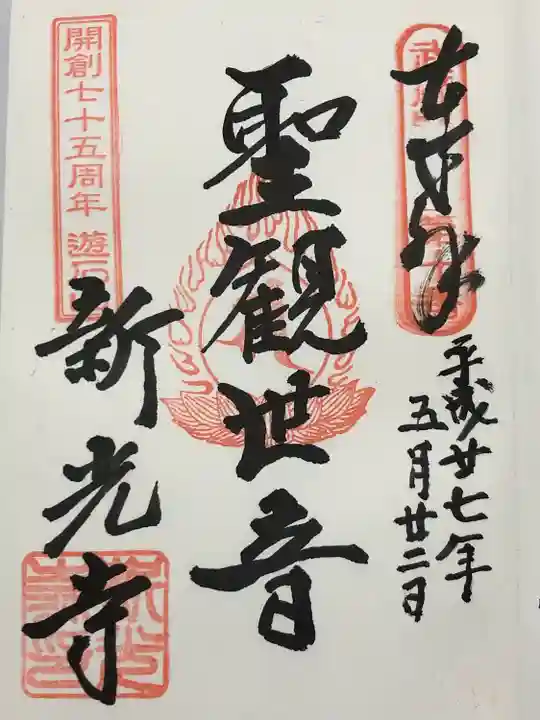 奉拝
平成廿七年
五月廿二日
聖観世音
開創七十五周年 遊
新光寺